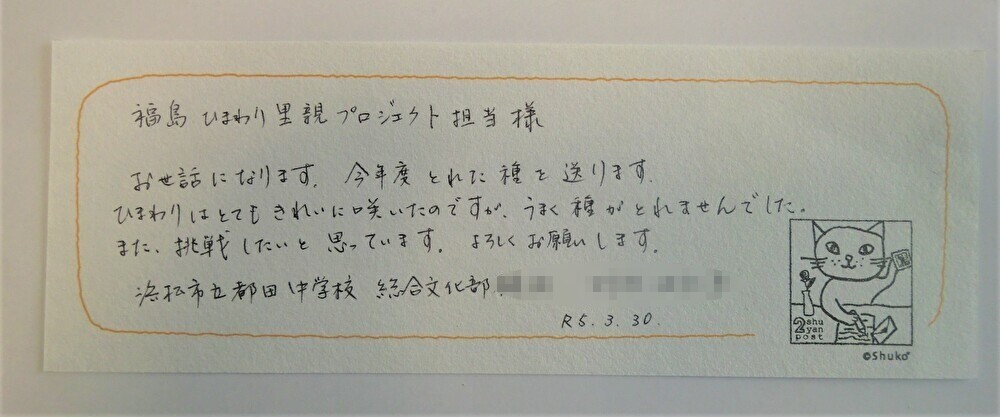 福島ひまわり里親プロジェクト担当様
お世話になります。今年度とれた種を送ります。
ひまわりはとてもきれいに咲いたのですが、うまく種がとれませんでした。
また、挑戦したいと思っています。よろしくお願いします。
浜松市立都田中学校 総合文化部
R5.3.30.
2 shu
yan
post
©Shuko